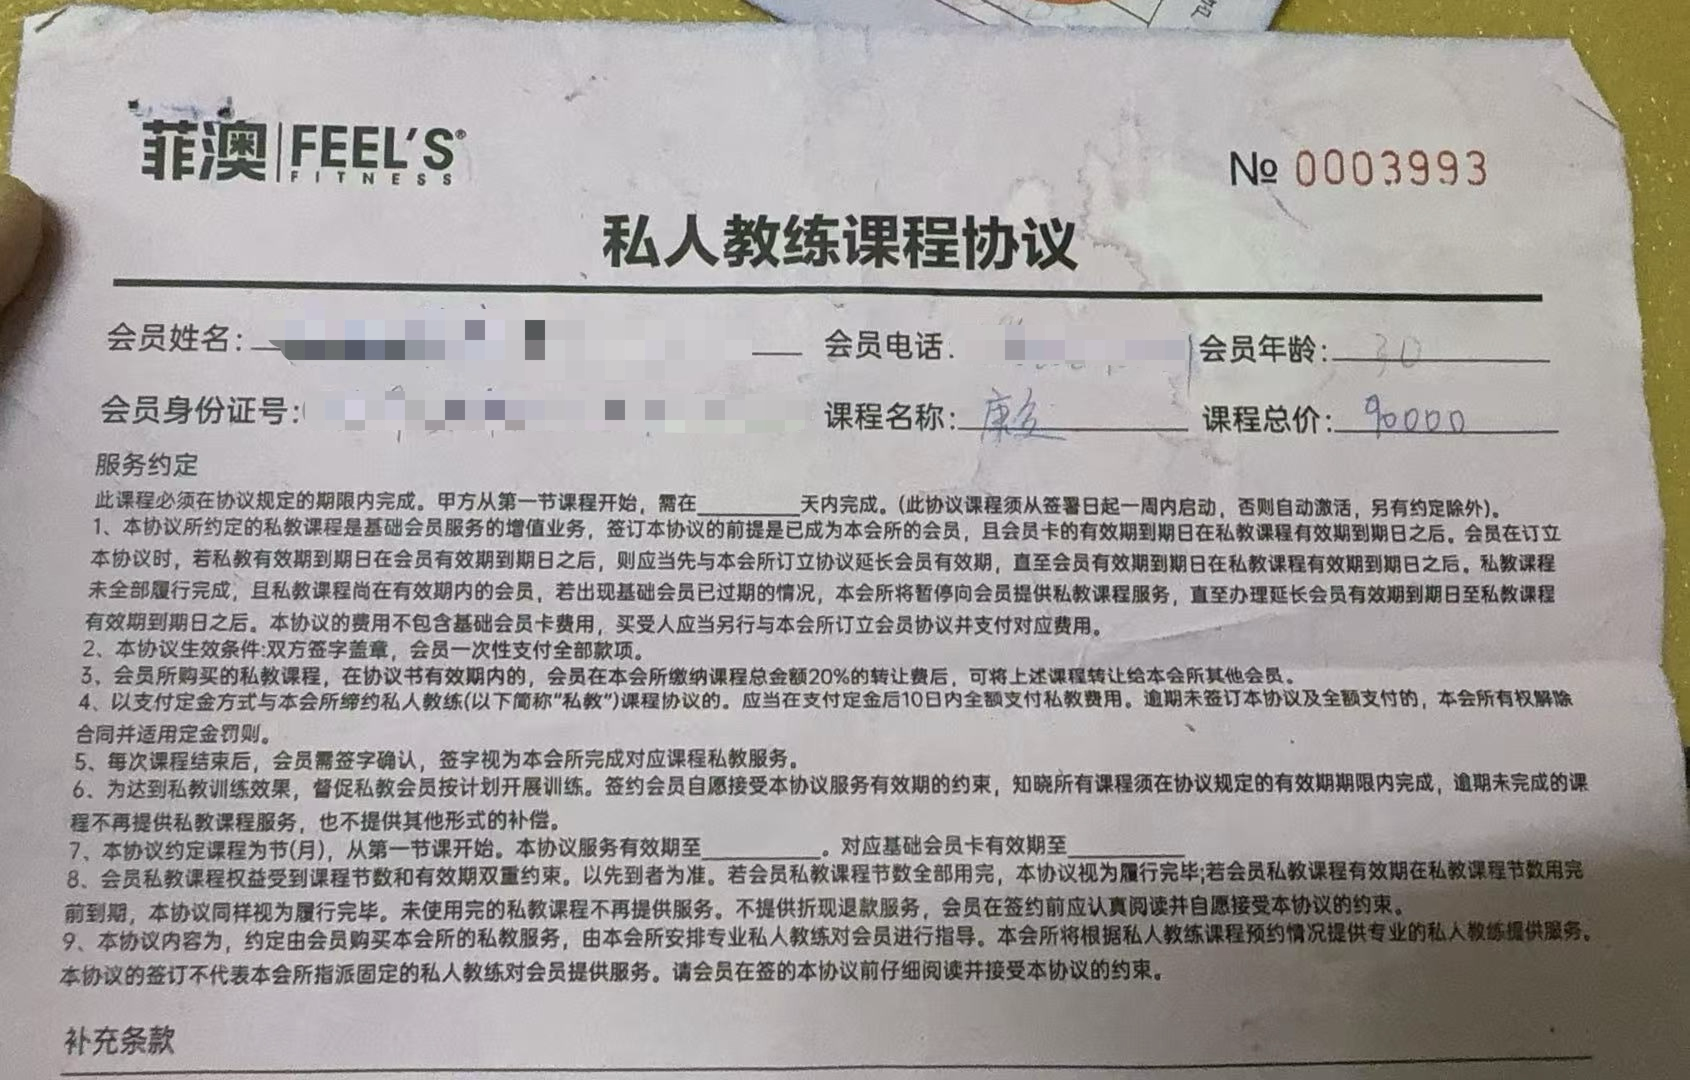 菲澳 FEEL'S®
FITNESS
№ 0003993
私人教练课程协议
会员姓名： 会员电话： 会员年龄：30
会员身份证号： 课程名称： 康复 课程总价：90000
服务约定
此课程必须在协议规定的期限内完成。甲方从第一节课程开始，需在________天内完成。(此协议课程须从签署日起一周内启动，否则自动激活，另有约定除外)。
1、本协议所约定的私教课程是基础会员服务的增值业务，签订本协议的前提是已成为本会所的会员，且会员卡的有效期到期日在私教课程有效期到期日之后。会员在订立
本协议时，若私教有效期到期日在会员有效期到期日之后，则应当先与本会所订立协议延长会员有效期，直至会员有效期到期日在私教课程有效期到期日之后。私教课程
未全部履行完成，且私教课程尚在有效期内的会员，若出现基础会员已过期的情况，本会所将暂停向会员提供私教课程服务，直至办理延长会员有效期到期日至私教课程
有效期到期日之后。本协议的费用不包含基础会员卡费用，买受人应当另行与本会所订立会员协议并支付对应费用。
2、本协议生效条件:双方签字盖章，会员一次性支付全部款项。
3、会员所购买的私教课程，在协议书有效期内的，会员在本会所缴纳课程总金额20%的转让费后，可将上述课程转让给本会所其他会员。
4、以支付定金方式与本会所缔约私人教练(以下简称“私教”)课程协议的。应当在支付定金后10日内全额支付私教费用。逾期未签订本协议及全额支付的，本会所有权解除
合同并适用定金罚则。
5、每次课程结束后，会员需签字确认，签字视为本会所完成对应课程私教服务。
6、为达到私教训练效果，督促私教会员按计划开展训练。签约会员自愿接受本协议服务有效期的约束，知晓所有课程须在协议规定的有效期期限内完成，逾期未完成的课
程不再提供私教课程服务，也不提供其他形式的补偿。
7、本协议约定课程为节(月)，从第一节课开始。本协议服务有效期至________。对应基础会员卡有效期至________
8、会员私教课程权益受到课程节数和有效期双重约束。以先到者为准。若会员私教课程节数全部用完，本协议视为履行完毕;若会员私教课程有效期在私教课程节数用完
前到期，本协议同样视为履行完毕。未使用完的私教课程不再提供服务。不提供折现退款服务，会员在签约前应认真阅读并自愿接受本协议的约束。
9、本协议内容为，约定由会员购买本会所的私教服务，由本会所安排专业私人教练对会员进行指导。本会所将根据私人教练课程预约情况提供专业的私人教练提供服务。
本协议的签订不代表本会所指派固定的私人教练对会员提供服务。请会员在签的本协议前仔细阅读并接受本协议的约束。
补充条款